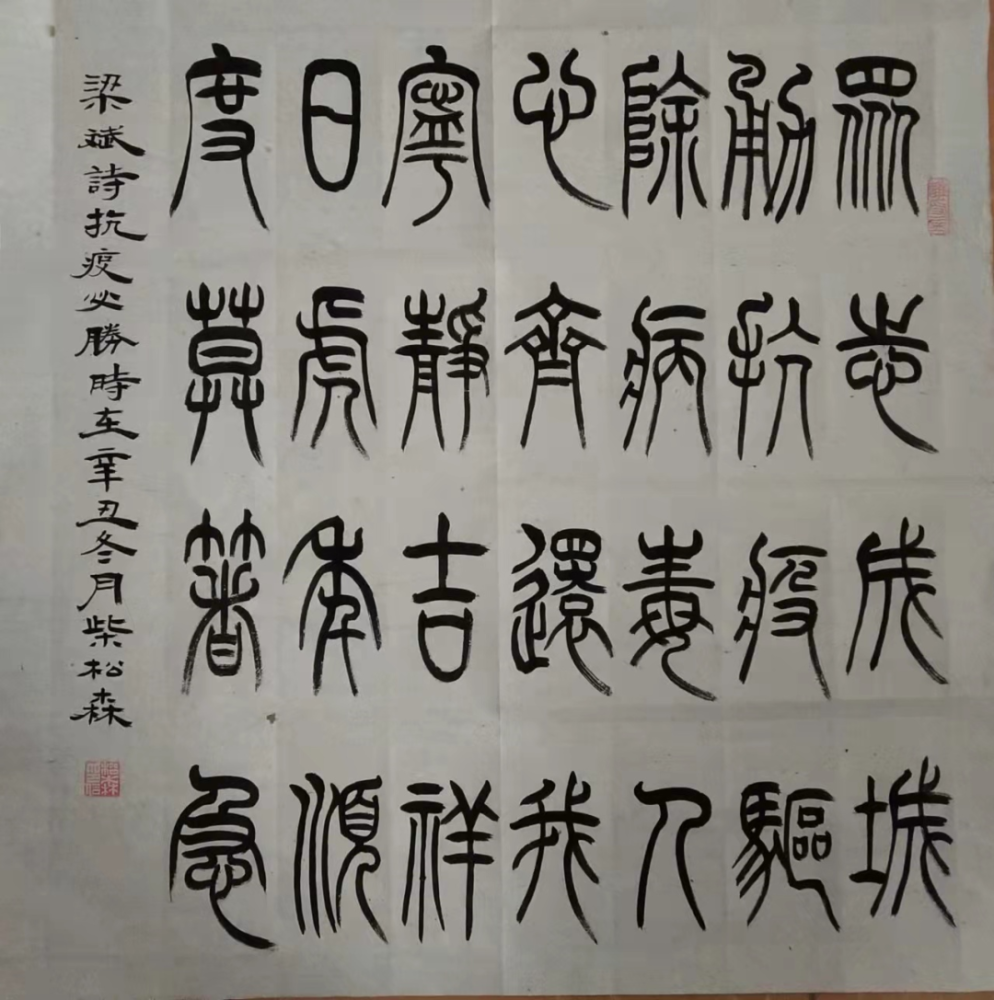 眾志成城
勇抗疫驅
除病毒人
心齊還我
寧靜吉祥
日虎年順
度莫箸急
梁斌詩抗疫必勝時在辛丑冬月柴松森